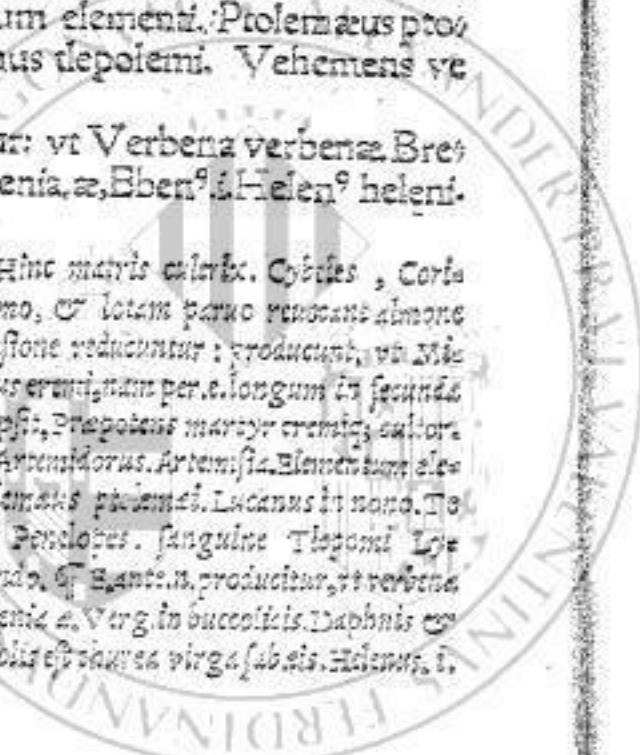 um elementi. Ptolemæus pto⸗
us tlepolemi. Vehemens ve
ur: vt Verbena verbenæ. Bre⸗
enia, æ, Ebenꝰ .i. Helenꝰ heleni.
Hinc matris Cybeles , Cori⸗
mo, & lotam paruo reuocant almone
sione reducuntur : producunt, vt Mi⸗
us eremi, nam per .e. longum in secunda
psit, Præpotens martyr eremiq; cultor.
Artemidorus. Artemisia. Elementum ele⸗
emæus ptolemæi. Lucanus in nono. To
Penelopes . sanguine Ly⸗
¶ E, ante .n. producitur, vt verbena
enia æ. Verg. in buccolicis. Daphnis &
est virga sub Helenus, i.
FERDINANDVS
VALENTINVS